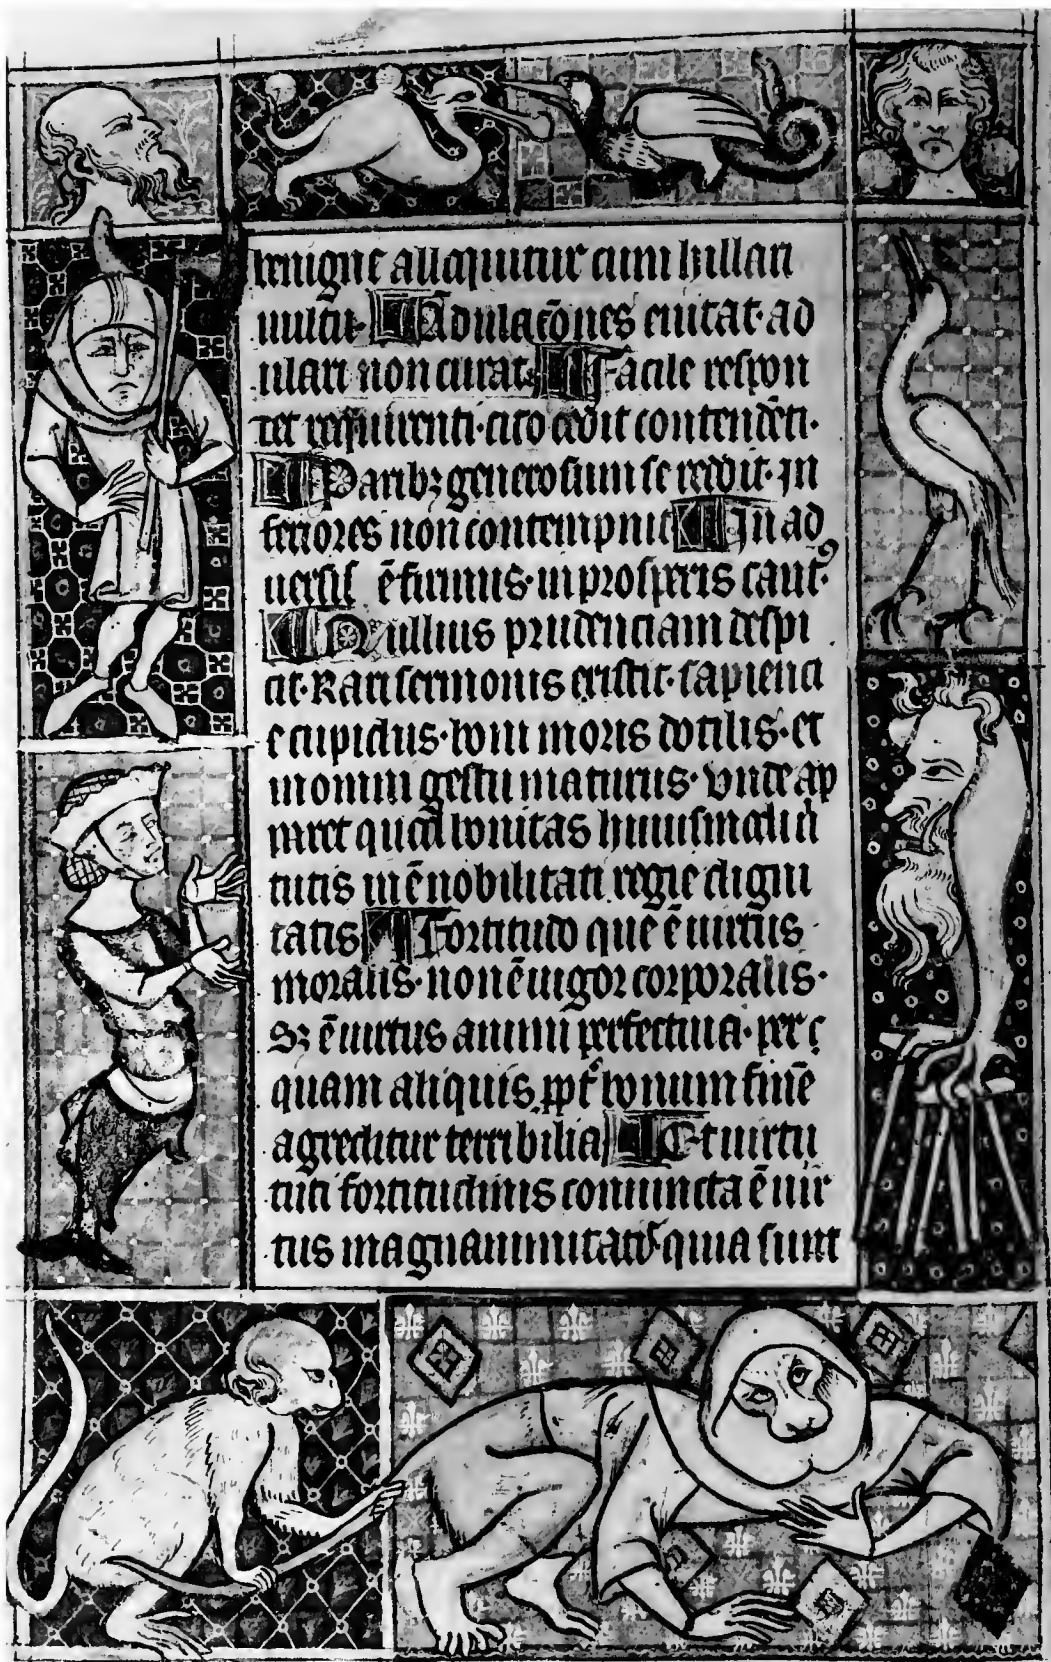 benigne alloquitur cum hillari
uultu. Adulac̄ones euitat. ad
ulari non curat. Facile respon
det requirenti. cito cedit contendēti.
Paribꝫ generosum se reddit. in
feriores non contempnit. In ad
uersis ē firmus. in prosperis cautꝰ.
Nullius prudenciam despi
cit. Rari sermonis existit. sapienci
e cupidus. boni moris docilis. et
in omni gestu maturus. vnde ap
paret quod bonitas huiusmodi vir
tutis inē nobilitati regie digni
tatis. Fortitudo que ē uirtus
moralis. non ē uigor corporalis.
Sꝫ ē uirtus animi perfectiua. per
quam aliquis ppt̄ bonum finē
agreditur terribilia. Et uirtu
tuti fortitudinis coniuncta ē uir
tus magnanimitatis quia sunt